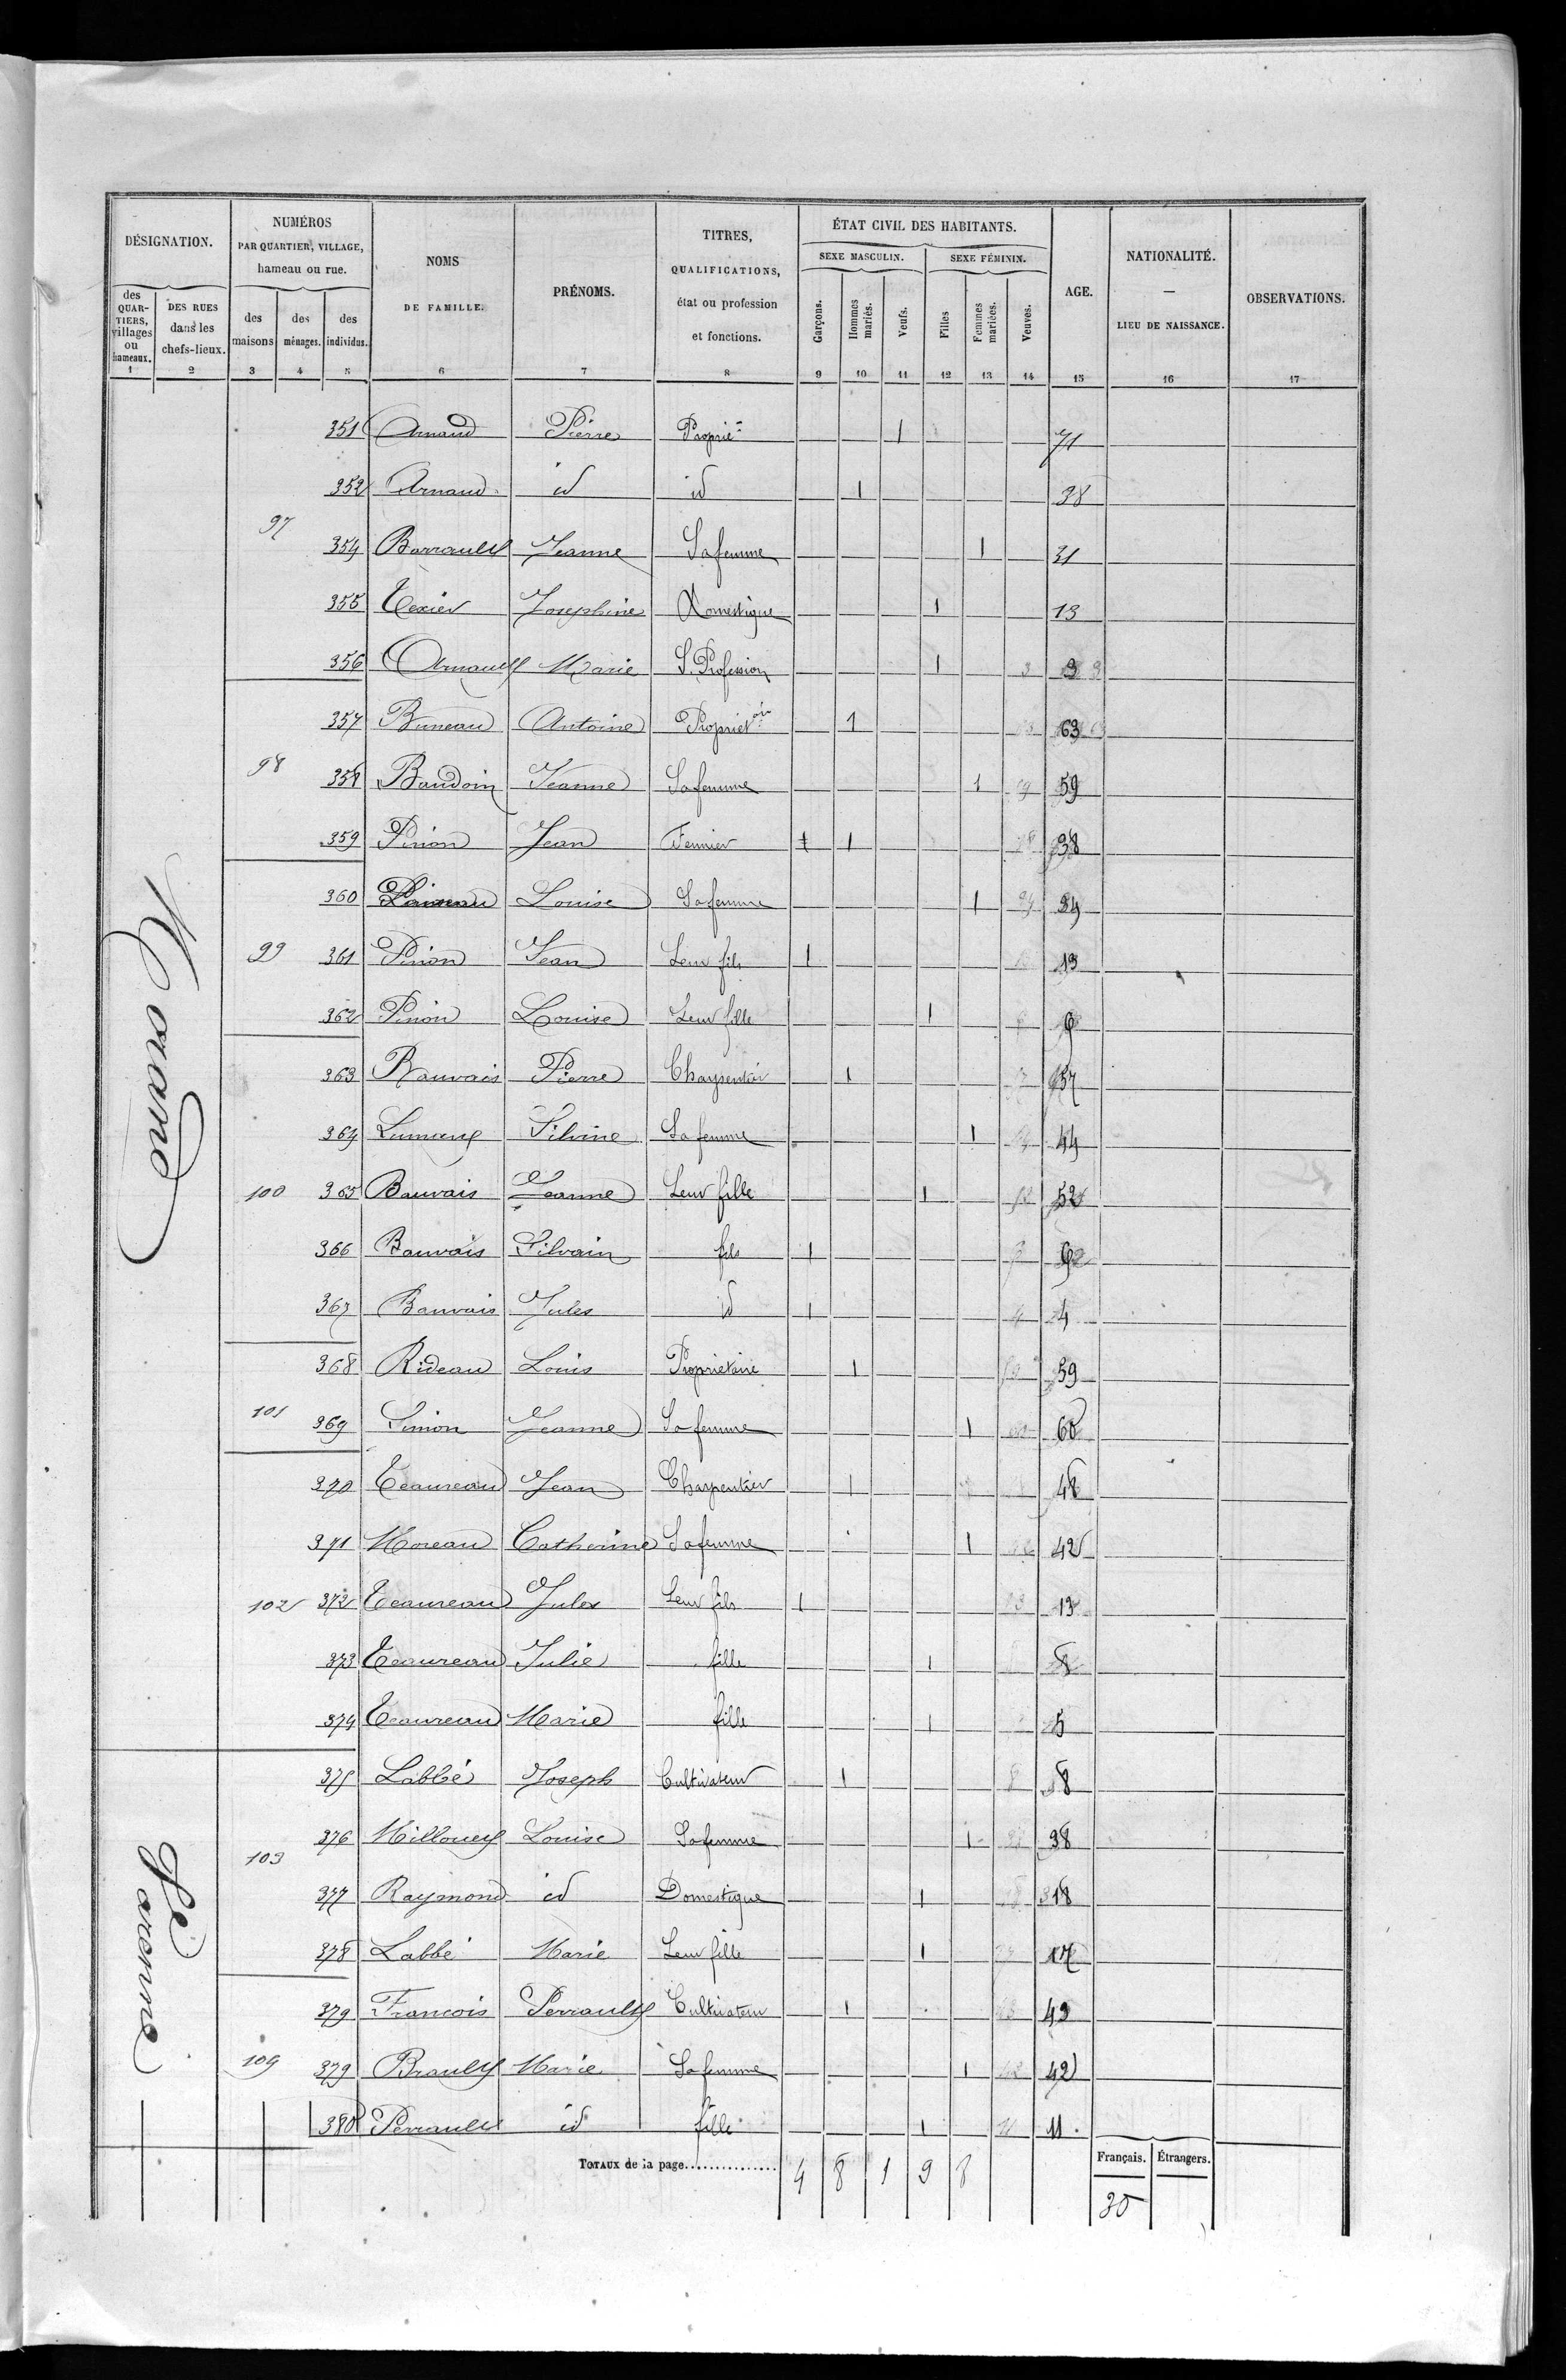 DÉSIGNATION.
NUMÉROS
PAR QUARTIER, VILLAGE,
hameau ou rue.
NOMS
DE FAMILLE.
PRÉNOMS.
TITRES,
QUALIFICATIONS,
état ou profession
et fonctions.
ÉTAT CIVIL DES HABITANTS.
SEXE MASCULIN.
SEXE FÉMININ.
AGE.
NATIONALITÉ.
—
LIEU DE NAISSANCE.
OBSERVATIONS.
des QUAR-TIERS, villages ou hameaux.
DES RUES dans les chefs-lieux.
des maisons
des ménages.
des individus.
Garçons.
Hommes mariés.
Veufs.
Filles
Femmes mariées.
Veuves.
1 2 3 4 5 6 7 8 9 10 11 12 13 14 15 16 17
351 Arnaud Pierre Proprie 1 71
352 Arnaud id id 1 38
97
354 Barrault Jeanne Sa femme 1 31
355 Texier Josephine Domestique 1 13
356 Arnault Marie S. Profession 1 3
357 Buneau Antoine Propriet 1 63
98 358 Baudoin Jeanne Sa femme 1 59
359 Pinion Jean Fermier 1 38
360 Louise Sa femme 1 34
99 361 Pinion Jean Leur fils 1 13
362 Pinion Louise Leur fille 1 6
363 Bauvais Pierre Charpentier 1 57
364 Silvine Sa femme 1 44
100 365 Bauvais Jeanne Leur fille 1
366 Bauvais Silvain fils 1
367 Bauvais Jules id 1 4
Morand
368 Rideau Louis Proprietaire 1 59
101 369 Simon Jeanne Sa femme 1 60
370 Teaureau Jean Charpentier 1 48
371 Moreau Catherine Sa femme 1 42
102 372 Teaureau Jules Leur fils 1 13
373 Teaureau Julie fille 1 8
374 Teaureau Marie fille 1 5
375 Labbé Joseph Cultivateur 1
376 Millouet Louise Sa femme 1 38
103
377 Raymond id Domestique 1 18
378 Labbé Marie Leur fille 1 17
Garenne
379 Francois Perrault Cultivateur 1 43
104 379 Brault Marie Sa femme 1 42
380 Perrault id fille 1 11
TOTAUX de la page............... 4 8 1 9 8
Français. Étrangers.
30